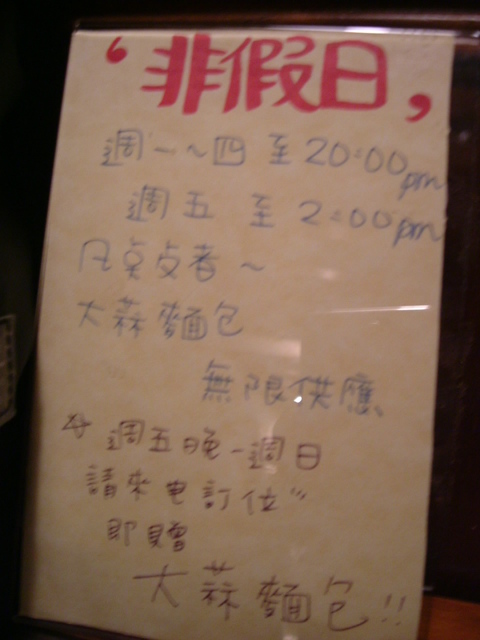 ‘非假日,
週一~四 至 20:00pm
週五 至 2:00pm
凡桌点者~
大蒜麵包
無限供應
☆ 週五晚-週日
請來电訂位"
即贈
大蒜麵包!!